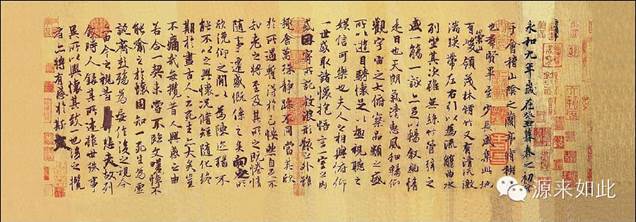 永和九年歲在癸丑暮春之初會
于會稽山陰之蘭亭脩稧事
也羣賢畢至少長咸集此地
有崇山峻領茂林脩竹又有清流激
湍暎帶左右引以為流觴曲水
列坐其次雖無絲竹管弦之
盛一觴一詠亦足以暢敘幽情
是日也天朗氣清惠風和暢仰
觀宇宙之大俯察品類之盛
所以遊目騁懷足以極視聽之
娛信可樂也夫人之相與俯仰
一世或取諸懷抱悟言一室之內
或因寄所託放浪形骸之外雖
趣舍萬殊靜躁不同當其欣
於所遇蹔得於己怏然自足不
知老之將至及其所之既惓情
隨事遷感慨係之矣向之所
欣俛仰之閒以為陳迹猶不
能不以之興懷況脩短隨化終
期於盡古人云死生亦大矣豈
不痛哉每攬昔人興感之由
若合一契未嘗不臨文嗟悼不
能喻之於懷固知一死生為虛
誕齊彭殤為妄作後之視今
亦由今之視昔悲夫故列
敘時人錄其所述雖世殊事
異所以興懷其致一也後之攬
者亦將有感於斯文
源来如此